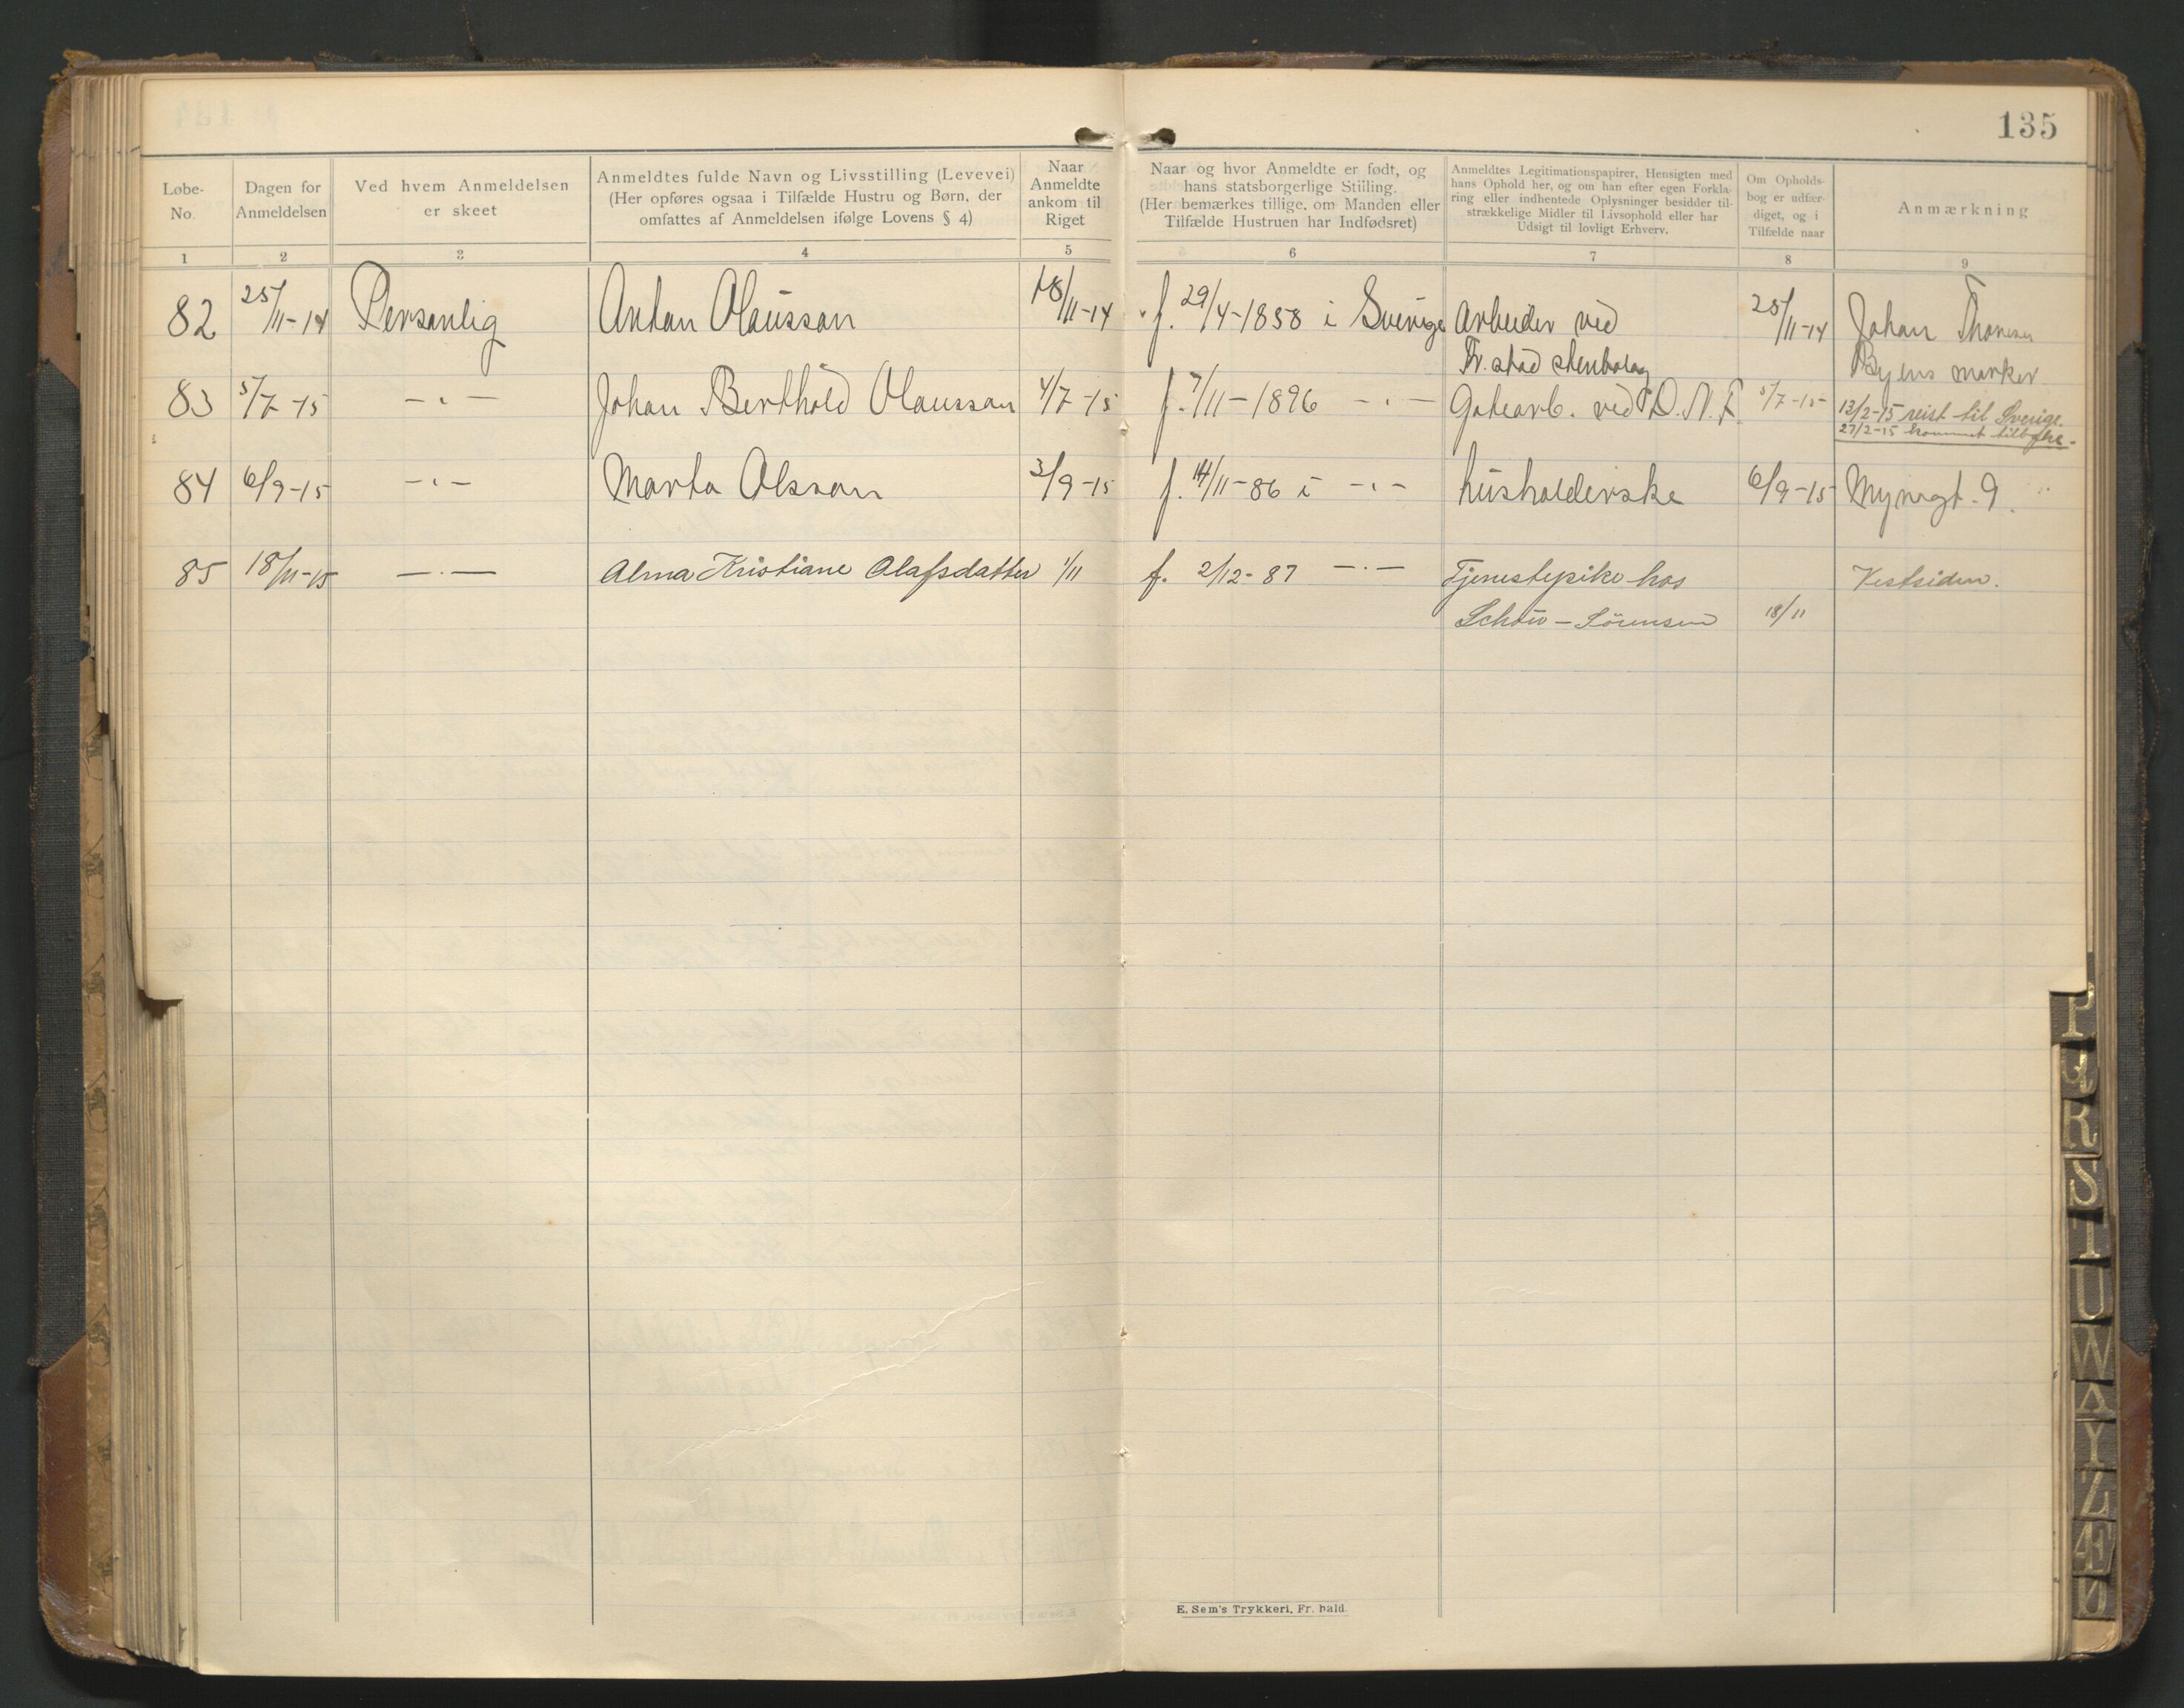 135
Løbe-
No.
Dagen for
Anmeldelsen
Ved hvem Anmeldelsen
er skeet
Anmeldtes fulde Navn og Livsstilling (Levevei)
(Her opføres ogsaa i Tilfælde Hustru og Børn, der
omfattes af Anmeldelsen ifølge Lovens § 4)
Naar
Anmeldte
ankom til
Riget
Naar og hvor Anmeldte er født, og
hans statsborgerlige Stilling.
(Her bemærkes tillige, om Manden eller
Tilfælde Hustruen har Indfødsret)
Anmeldtes Legitimationspapirer, Hensigten med
hans Ophold her, og om han efter egen Forkla-
ring eller indhentede Oplysninger besidder til-
strækkelige Midler til Livsophold eller har
Udsigt til lovligt Erhverv.
Om Opholds-
bog er udfær-
diget, og i
Tilfælde naar
Anmærkning
1 2 3 4 5 6 7 8 9
82 25/11-14 Personlig Anton Olausson 18/11-14 f. 29/4-1858 i Sverige Arbeider ved 25/11-14 Johan
Fr.stad stenbolag Byens marker
83 5/7-15 -"- Johan Berthold Olausson 4/7-15 f. 7/11-1896 -"- Gatearb. ved D.N.F. 5/7-15 13/2-15 reist til Sverige.
27/2-15 kommet tilbake.
84 6/9-15 -"- Marta Olsson 3/9-15 f. 14/11-86 i -"- husholderske 6/9-15 9.
85 18/11-15 -"- Alma Kristiane Olafsdatter 1/11 f. 2/12-87 -"- Tjenestepike hos Vestsiden.
Schou-Sörensen 18/11
E. Sem's Trykkeri, Fr.hald.
P
Q
R
S
T
U
W
X
Y
Z
Æ
Ø